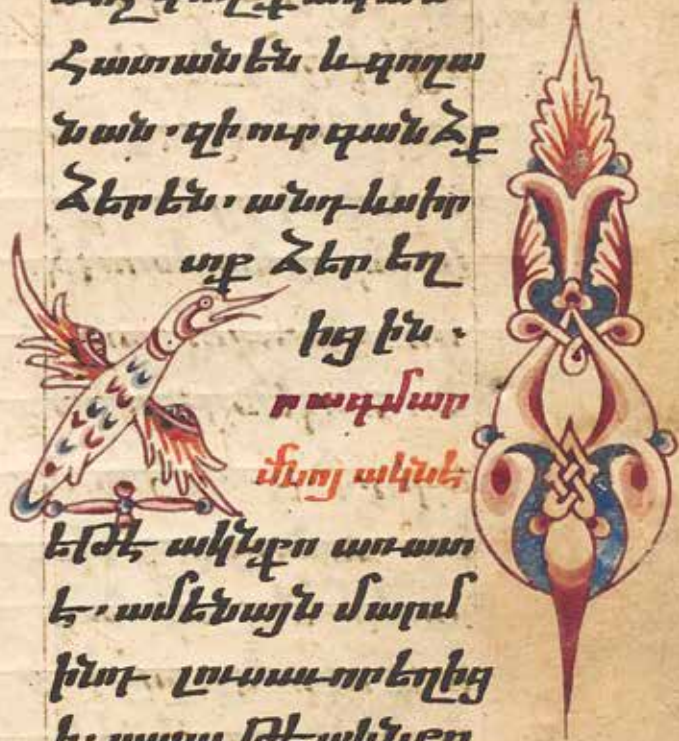 Հատանեն և գողա
նան. զի ուր գանձք
ձեր են. անդ և սիր
տք ձեր եղ
իցին.
րագ մար
մնոյ ակն է
եթէ ակնքո առատ
է. ամենայն մարմ
ինդ լուսաւոր եղից
ի. ապա թէ ակնքո